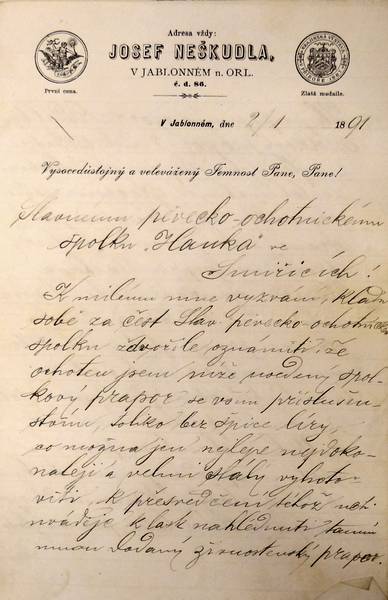 Adresa vždy:
JOSEF NEŠKUDLA,
V JABLONNÉM n. ORL.
č. d. 86.
První cena.
Zlatá medaile.
V Jablonném, dne 2/1 1891
Vysocedůstojný a velevážený Temnost Pane, Pane!
Slavnému pěvecko-ochotnickému
spolku "Hanka" ve
Smiřicích!
K milému mne vyzvání, kladu
sobě za čest Slav. pěvecko-ochotnic.
spolku zdvořile oznámiti, že
ochoten jsem níže uvedený spol-
kový prapor se vším příslušen-
stvím, toliko bez špice liry,
co možna jen nejlépe nejdoko-
naleji a velmi stálý vyhoto-
viti, k přesvědčení téhož
k lask nahlédnutí tamní
mnou dodaný živnostenský prapor.